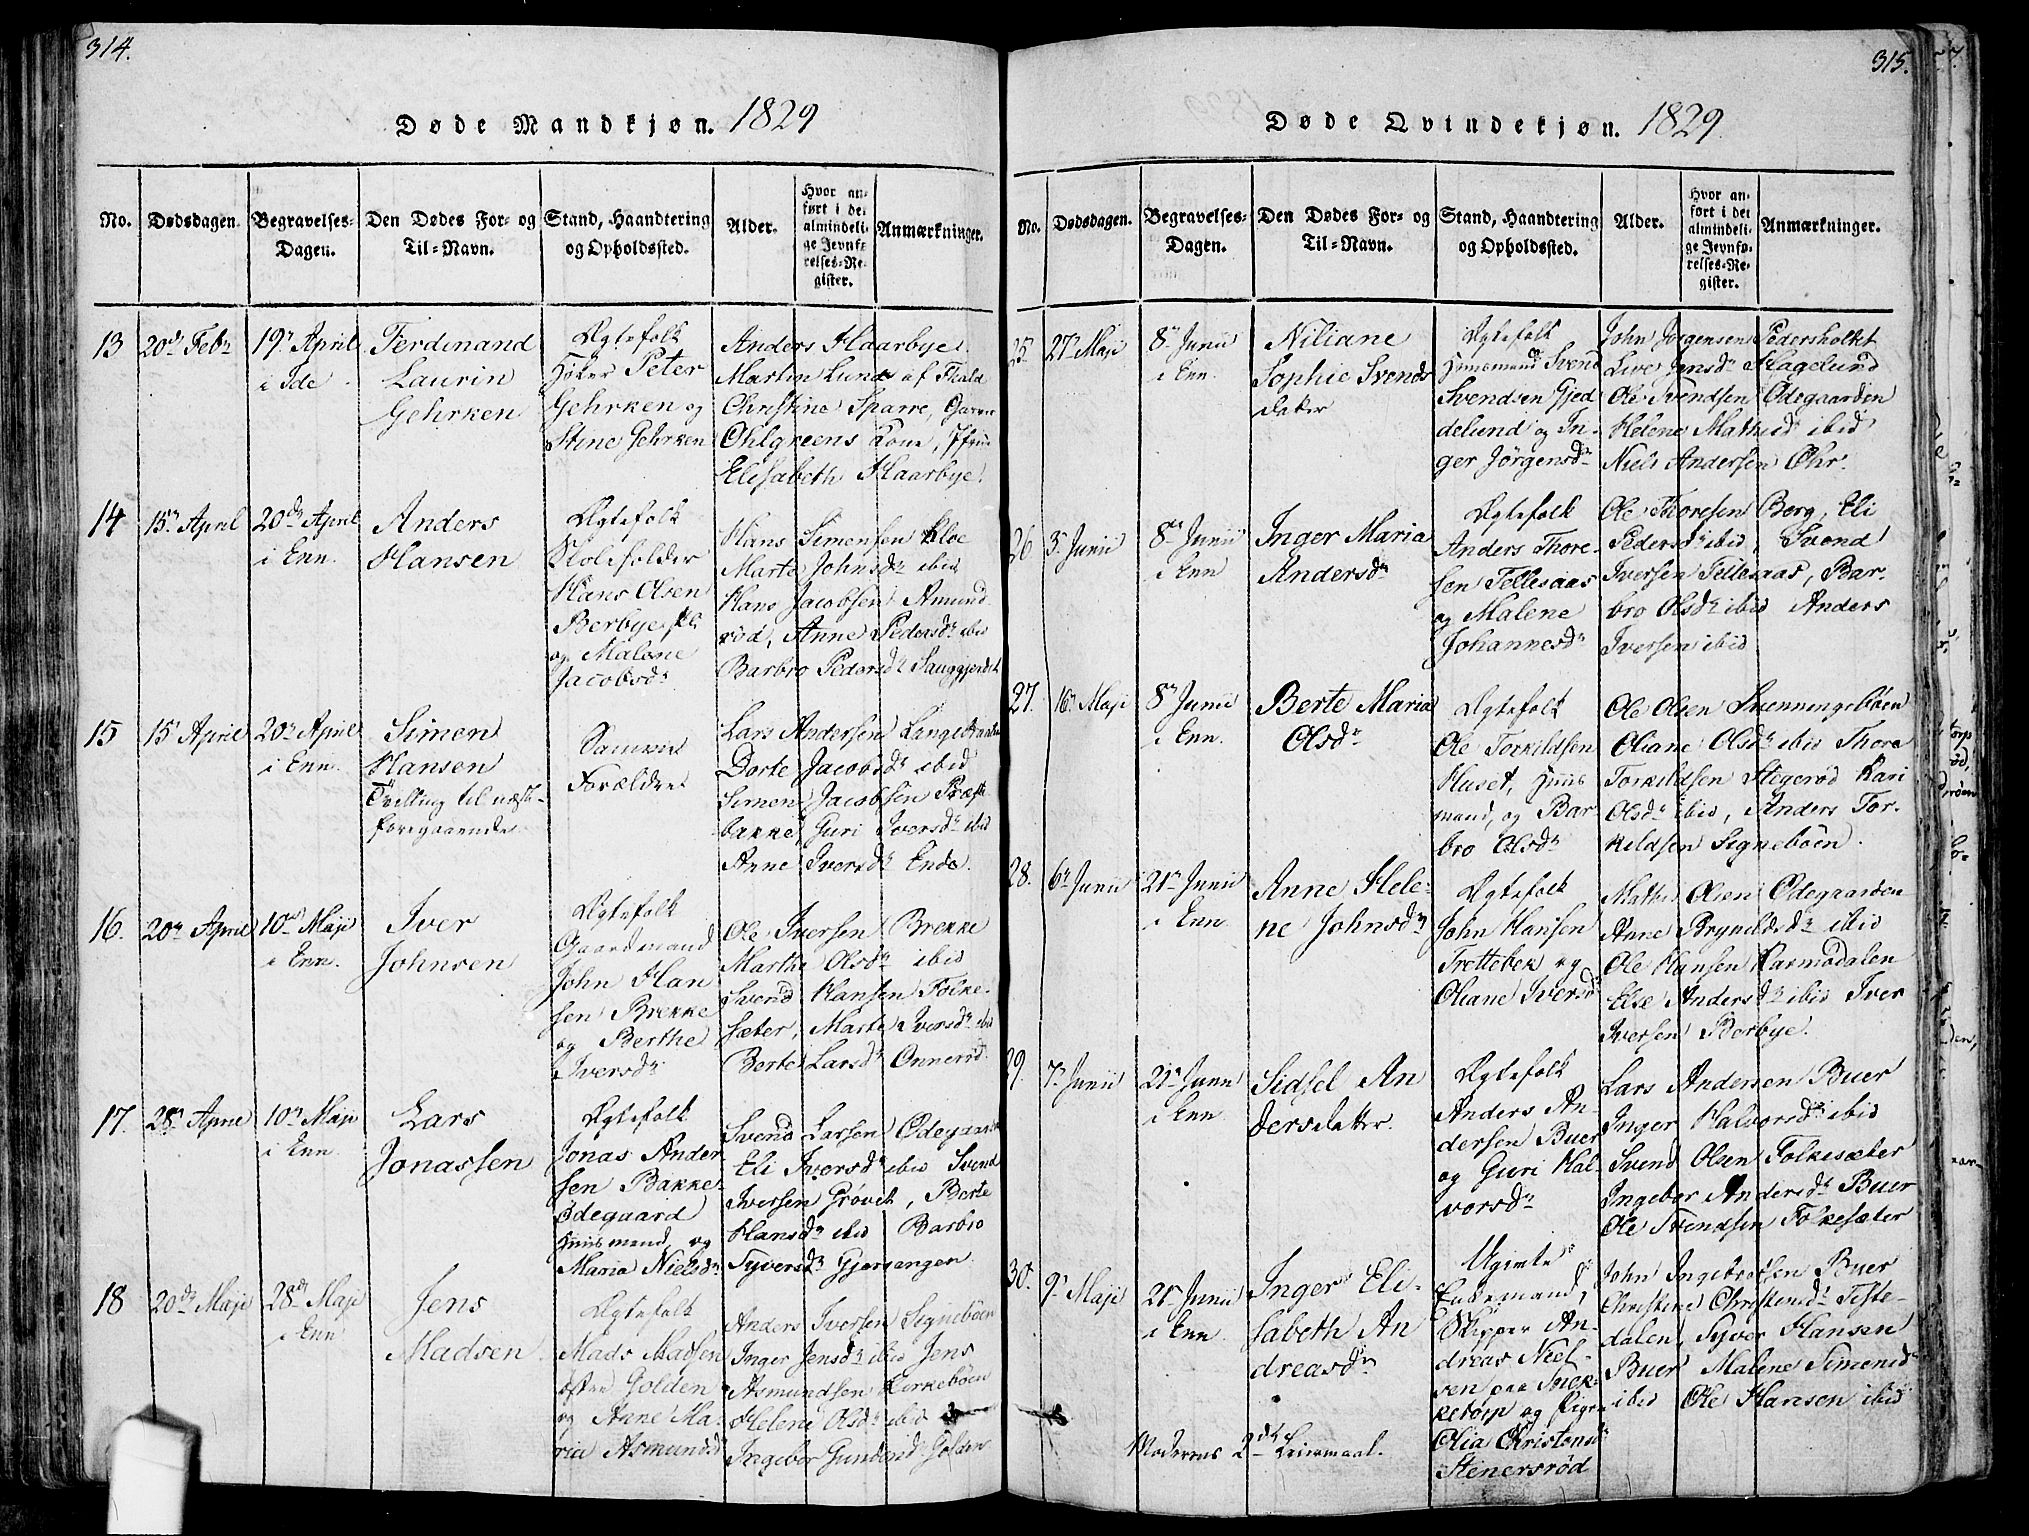 314.
Døde Mandkjøn. 1829
No.
Dødsdagen.
Begravelses-
Dagen.
Den Dødes For- og
Til-Navn.
Stand, Haandtering
og Opholdssted.
Alder.
Hvor an-
ført i det
almindeli-
ge Jevnfø-
relses-Re-
gister.
Anmærkninger.
13
20de Febr
19n April
i Ide
Ferdinand
Laurin
Gehrken
Ægtefolk
Høker Peter
Gehrken og
Stine Gehrken
Anders Haarbye
Marten Lund af Fhald
Christine Sparre,
Ohlgreens Kone,
Elisabeth Haarbye
14
15n April
20de April
i Enn.
Anders
Hansen
Ægtefolk
Skoleholder
Hans Olsen
Berbye
og Malene
Jacobsdr
Hans Simensen Kloe
Marte Johnsdr ibid
Hans Jacobsen Amund
rød, Anne Pedersdr ibid
Barbro Pedersdr
15
15n April
20n April
i Enn.
Simen
Hansen
Tvilling til næst-
foregaaende
Samme
Forældre
Lars Andersen
Dorte Jacobsdr ibid
Simen Jacobsen Præste
bakke, Guri Iversdr ibid
Anne Iversdr Ende
16.
20n April
10de Maji
i Enn.
Iver
Johnsen
Ægtefolk
Gaardmand
John Han
sen Brekke
og Berthe
Iversdr
Ole Iversen Brekke
Marthe Olsdr ibid
Svend Hansen Folke-
sæter, Marte Iversdr ibid
Berte Larsdr Onnersd.
17.
28n April
10n Maji
i Enn.
Lars
Jonassen
Ægtefolk
Jonas Ander
sen Bakke-
Ødegaard
Huusmand, og
Maria Nielsdr
Svend Larsen Ødegaard
Eli Iversdr ibid Svend
Iversen Prøvet, Berte
Hansdr ibid Barbro
Syversdr Gjervangen
18
20de Maji
28de Maji
i Enn
Jens
Madsen
Ægtefolk
Mads Madsen
østre Golden
og Anne Ma-
ria Asmundsd
Anders Iversen Signebøen
Inger Jensdr ibid Jens
Asmundsen Kirkebøen
Helene Olsdr ibid
Ingebor Gundersd Golden
315.
Døde Qvindekjøn. 1829.
No.
Dødsdagen.
Begravelses-
Dagen.
Den Dødes For- og
Til-Navn.
Stand, Haandtering
og Opholdssted.
Alder.
Hvor an-
ført i det
almindeli-
ge Jevnfø-
relses-Re-
gister.
Anmærkninger.
25.
27n Maji
8n Junii
i Enn.
Niliane
Sophie Svends
datter
Ægtefolk
Huusmand Svend
Svendsen Gjed
delund og In-
ger Jørgensdr
John Jørgensen Pedersholtet
Live Jensdr Hagelund
Ole Svendsen Ødegaarden
Helene Mathisd ibid
Niels Andersen Ohr.
26
3n Junii
8de Junii
i Enn
Inger Maria
Andersdr
Ægtefolk
Anders Thore-
sen Tellesaas
og Malene
Johannesdr
Ole Thoresen Borg, Eli
Pedersdr ibid, Svend
Iversen Tellesaas, Bar-
bro Olsdr ibid Anders
Iversen ibid
27.
16n Maji
8n Junii
i Enn.
Berte Maria
Olsdr
Ægtefolk
Ole Torkildsen
Huset, Huus
mand, og Bar-
bro Olsdr
Ole Olsen Svenningsbøen
Oliane Olsdr ibid Thore
Torkildsen Stegerød Kari
Olsdr ibid, Anders Tor-
kildsen Signebøen.
28.
6n Junii
21n Junii
i Enn.
Anne Hele-
ne Johnsdr
Ægtefolk
John Hansen
Trettebek og
Oliane Iversd
Mathis Olsen Ødegaarden
Anne Brynildsdr ibid
Ole Hansen Karmodalen
Else Andersdr ibid Iver
Iversen Berbye.
29.
7n Junii
21n Juni
i Enn.
Sidsel An
dersdatter.
Ægtefolk
Anders An-
dersen Buer
og Guri Hal-
vorsdr
Lars Andersen Buer
Inger Halvorsdr ibid
Svend Olsen Folkesæter
Ingebor Andersdr Buer
Ole Svendsen Folkesæter
30.
9n Maji
21n Junii
i Enn.
Inger Eli-
sabeth An
dreasdr
Ugivte
Enkemand,
Skipper An-
dreas Niel-
sen paa
ketorp og Pigen
Olia Christensdr
Stenersrød
John Ingebretsen Buer
Christine Christensdr Tiste-
dalen, Syver Hansen
Buer Malene Simensd
ibid Ole Hansen ibid
Moderens 2det Leiermaal.